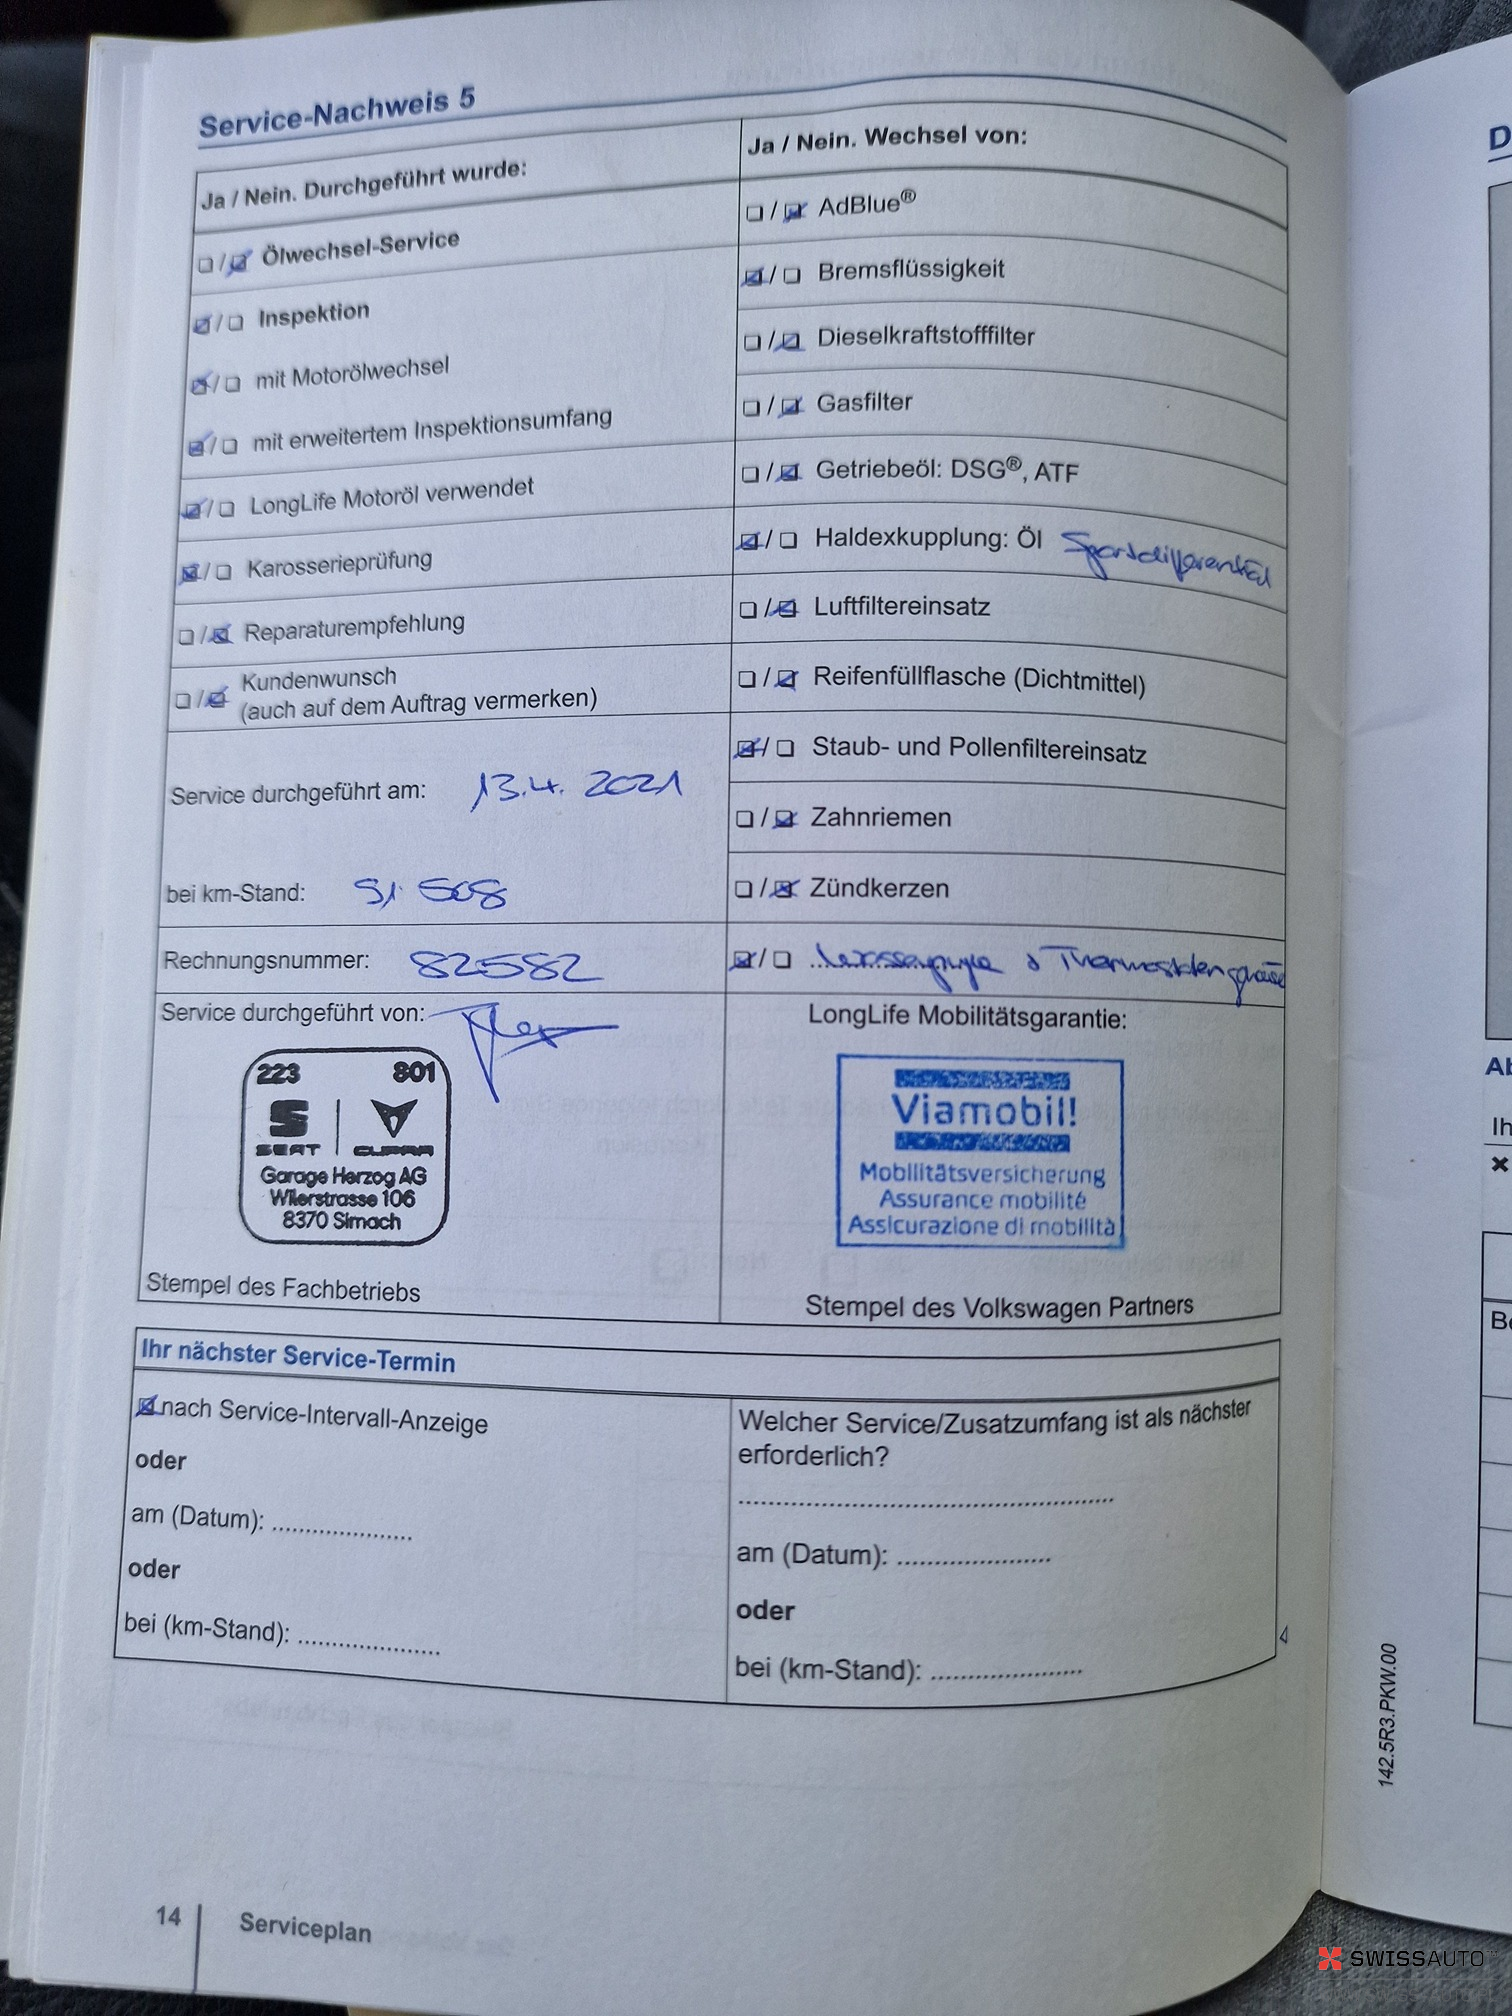 Service-Nachweis 5
Ja / Nein. Durchgeführt wurde:
☐ / ☑ Ölwechsel-Service
☑ / ☐ Inspektion
☑ / ☐ mit Motorölwechsel
☑ / ☐ mit erweitertem Inspektionsumfang
☑ / ☐ LongLife Motoröl verwendet
☑ / ☐ Karosserieprüfung
☐ / ☑ Reparaturempfehlung
☐ / ☑ Kundenwunsch
(auch auf dem Auftrag vermerken)
Service durchgeführt am: 13.4. 2021
bei km-Stand:
Rechnungsnummer: 82582
Service durchgeführt von:
223 801
SEAT CUPRA
Garage Herzog AG
Wilerstrasse 106
8370 Sirnach
Stempel des Fachbetriebs
Ja / Nein. Wechsel von:
☐ / ☑ AdBlue®
☑ / ☐ Bremsflüssigkeit
☐ / ☑ Dieselkraftstofffilter
☐ / ☑ Gasfilter
☐ / ☑ Getriebeöl: DSG®, ATF
☑ / ☐ Haldexkupplung: Öl Sportdifferential
☐ / ☑ Luftfiltereinsatz
☐ / ☑ Reifenfüllflasche (Dichtmittel)
☑ / ☐ Staub- und Pollenfiltereinsatz
☐ / ☑ Zahnriemen
☐ / ☑ Zündkerzen
☑ / ☐
LongLife Mobilitätsgarantie:
Viamobil!
Mobilitätsversicherung
Assurance mobilité
Assicurazione di mobilità
Stempel des Volkswagen Partners
Ihr nächster Service-Termin
☑ nach Service-Intervall-Anzeige
oder
am (Datum): .....................
oder
bei (km-Stand): .....................
Welcher Service/Zusatzumfang ist als nächster
erforderlich?
........................................................
am (Datum): .......................
oder
bei (km-Stand): .......................
14 Serviceplan
142.5R3.PKW.00
SWISSAUTO